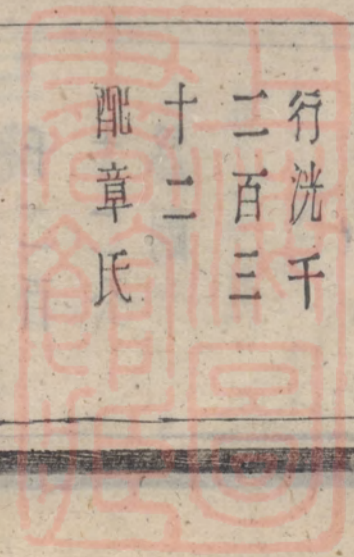 行洸千
二百三
十二
配章氏